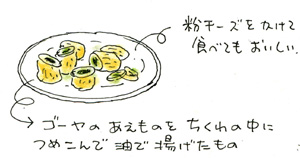 粉チーズをかけて
食べてもおいしい。
ゴーヤのあえものをちくわの中に
つめこんで油で揚げたもの